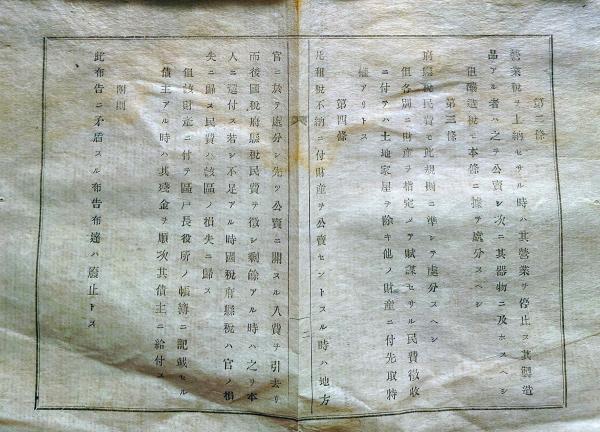 第二條
營業税ヲ上納セサル時ハ其營業ヲ停止ス其製造
品アル者ハ之ヲ公賣シ次ニ其器物ニ及ホスヘシ
但釀造税モ本條ニ據テ處分スヘシ
第三條
府縣税民費モ此規則ニ準シテ處分スヘシ
但各別ニ財産ヲ指定メ賦課セサル民費徴收
ニ付テハ土地家屋ヲ除キ他ノ財産ニ付先取特
權アリトス
第四條
凡租税不納ニ付財産ヲ公賣セントスル時ハ地方
官ニ於テ處分シ先ツ公賣ニ關スル入費ヲ引去リ
而後國税府縣税民費ヲ徴シ剩餘アル時ハ之ヲ本
人ニ還付ス若シ不足アル時國税府縣税ハ官ノ損
失ニ歸ス民費ハ該區ノ損失ニ歸ス
但該財産ニ付テ區戸長役所ノ帳簿ニ記載セル
債主アル時ハ其殘金ヲ順次其債主ニ給付ス
附則
此布告ニ矛盾スル布告布達ハ廢止トス